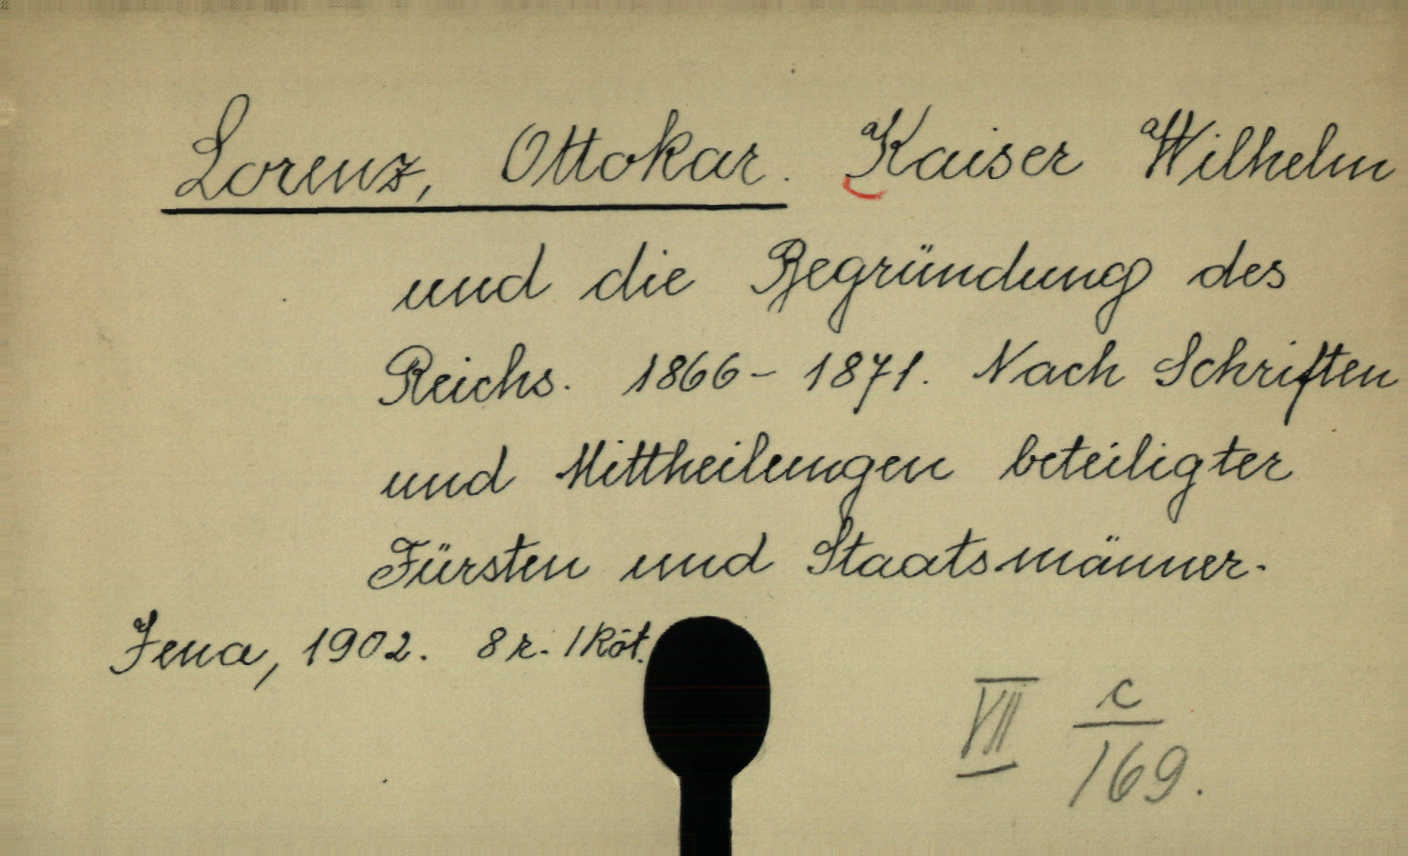 Lorenz, Ottokar. Kaiser Wilhelm
und die Begründung des
Reichs. 1866-1871. Nach Schriften
und Mittheilungen beteiligter
Fürsten und Staatsmänner.
Jena, 1902. 8r. 1 köt.
VII c/169.